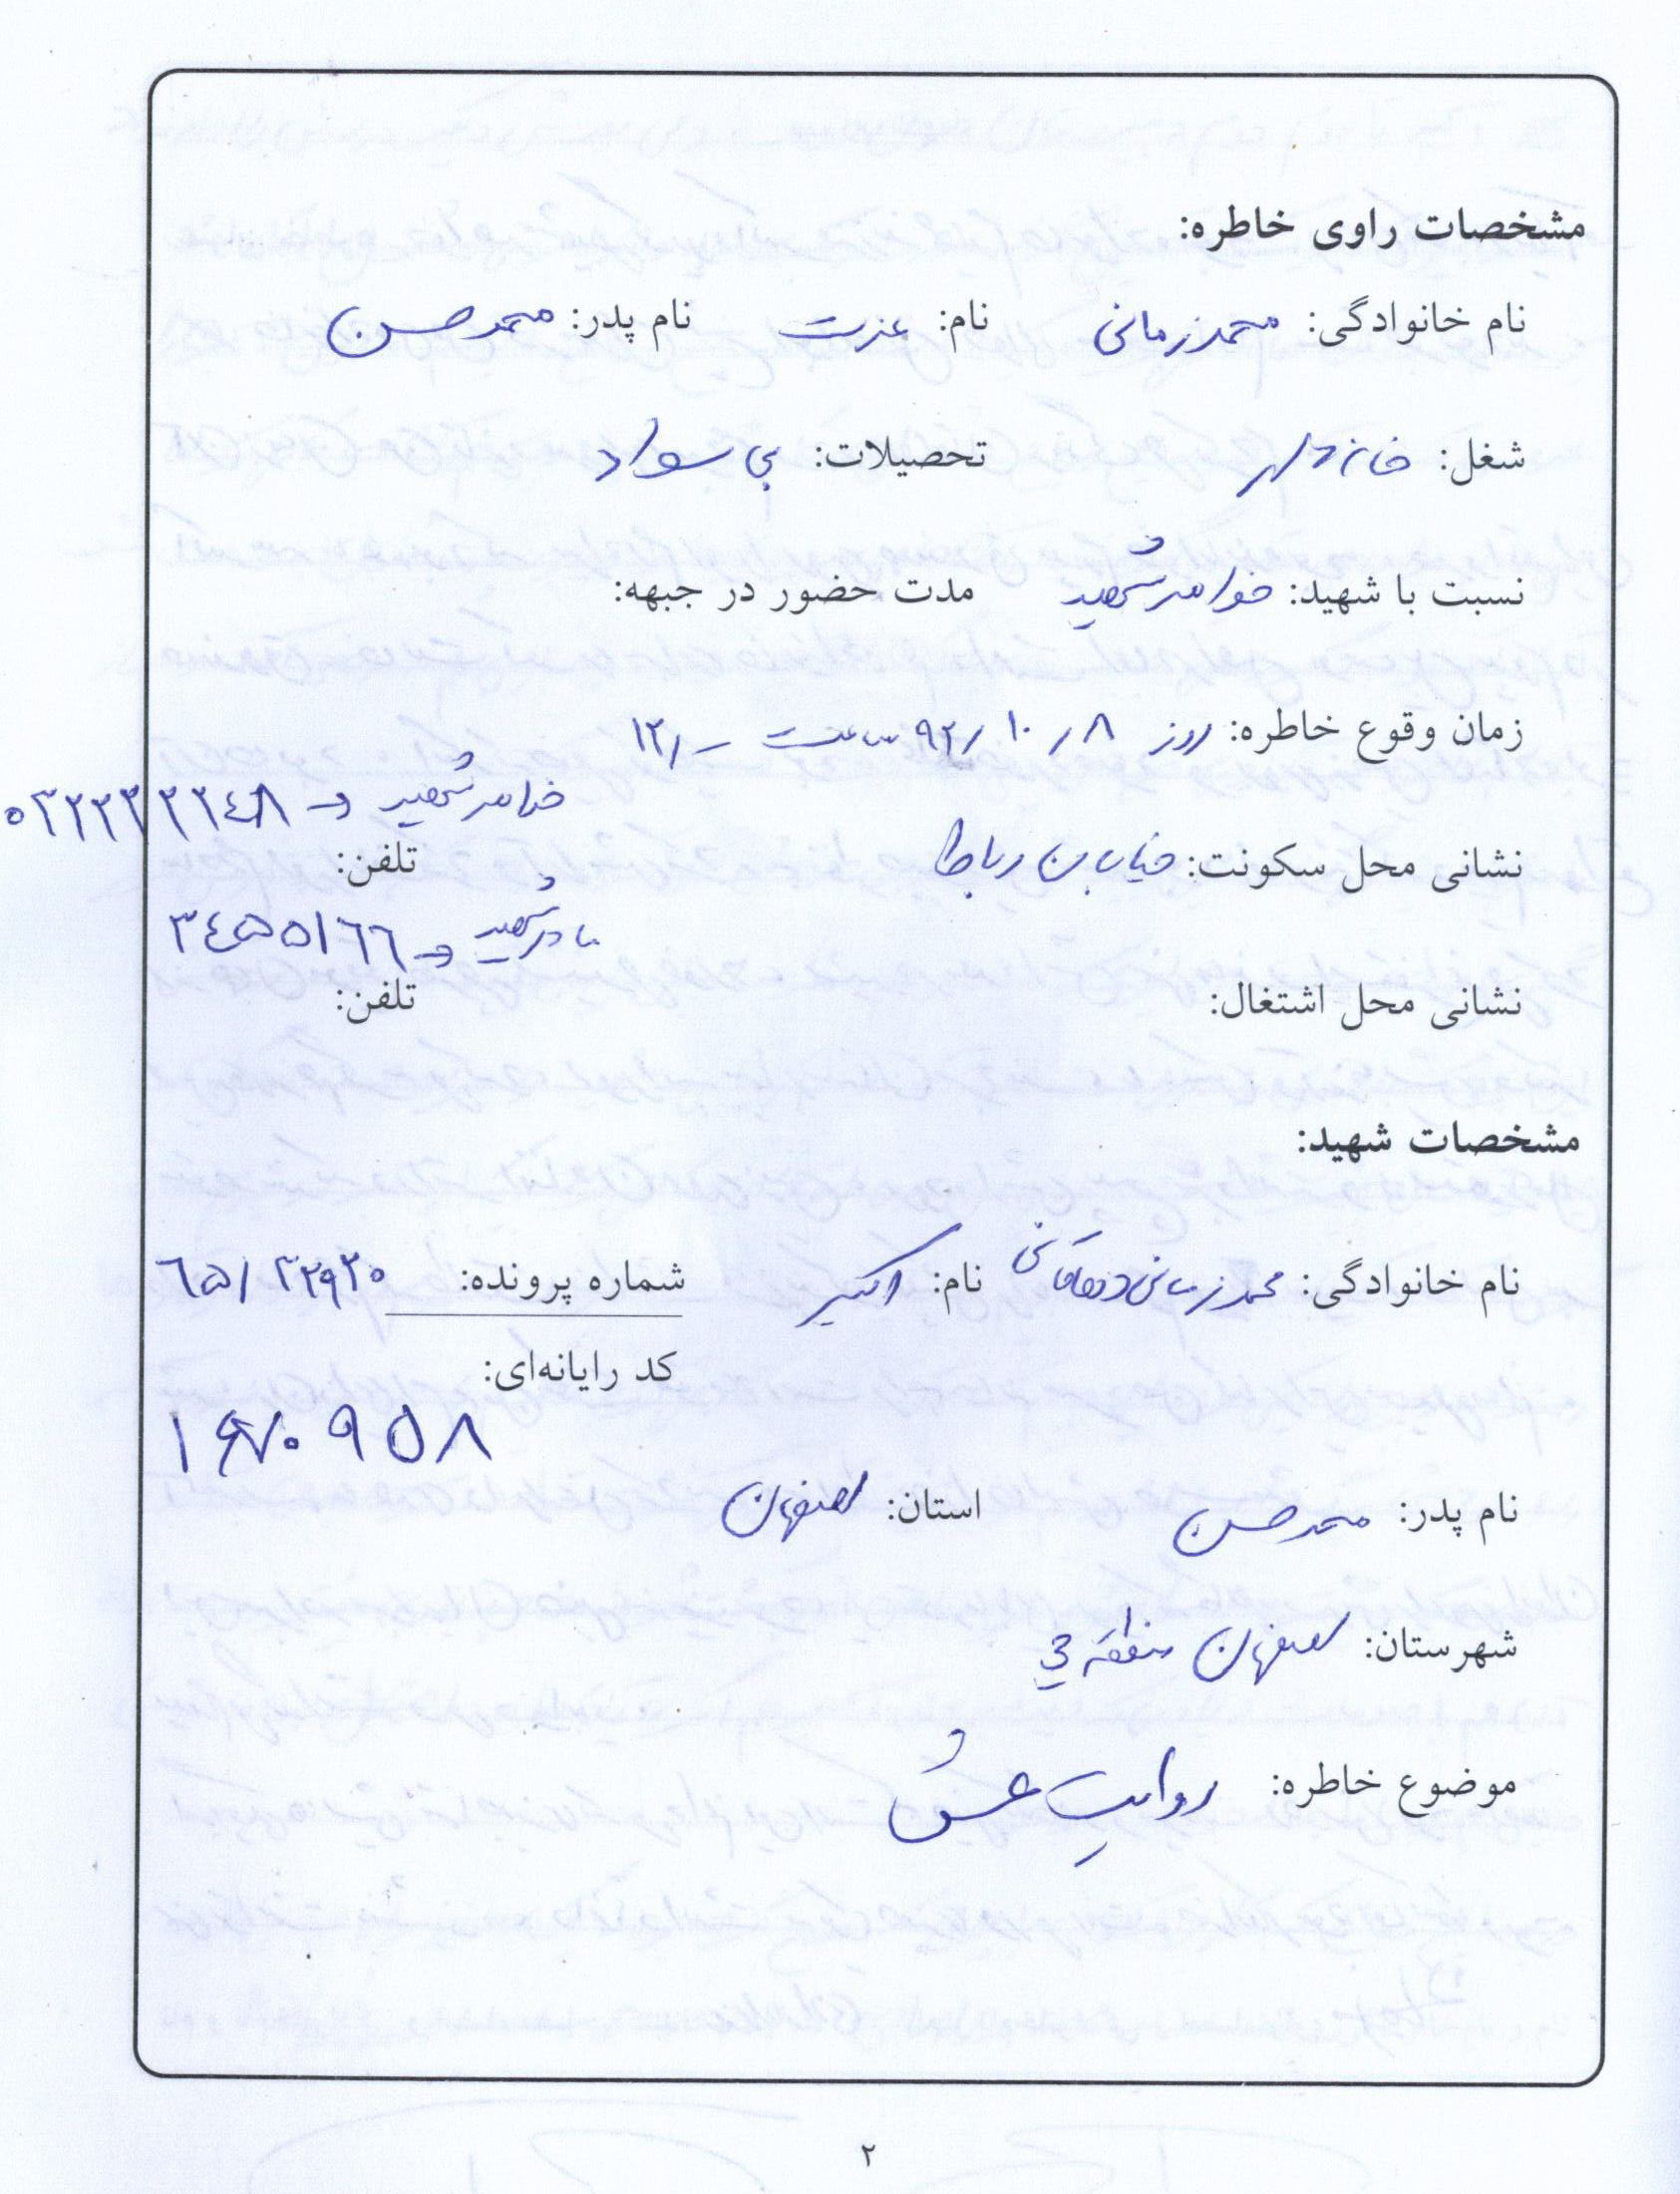 مشخصات راوی خاطره:
نام خانوادگی: محمدزمانی نام: عزت نام پدر: محمدحسن
شغل: خانه دار تحصیلات: بی سواد
نسبت با شهید: خواهر شهید مدت حضور در جبهه:
زمان وقوع خاطره: روز ۹۲/۱۰/۸ ساعت ۱۲/-
خواهر شهید → ۰۳۲۲۳۲۲۴۸
نشانی محل سکونت: خیابان رباط تلفن:
مادر شهید → ۳۴۵۵۱۶۶
نشانی محل اشتغال: تلفن:
مشخصات شهید:
نام خانوادگی: محمدزمانی دهاقانی نام: اکبر شماره پرونده: ۶۵/۲۲۹۲۰
کد رایانه‌ای:
نام پدر: محمدحسن استان: اصفهان
شهرستان: اصفهان منطقه ۳
موضوع خاطره: روایتِ عشق
۲